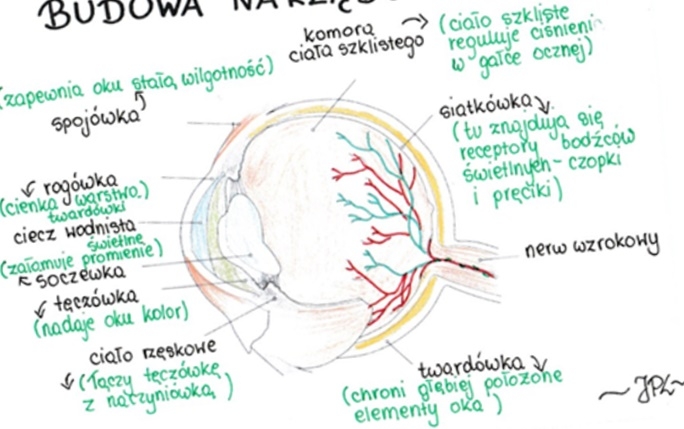 BUDOWA
komora
ciała szklistego
(ciało szkliste
reguluje ciśnieni
w gałce ocznej)
(zapewnia oku stałą wilgotność)
spojówka
siatkówka
(tu znajdują się
receptory bodźców
świetlnych - czopki
i pręciki)
rogówka
(cienka warstwa
twardówki)
ciecz wodnista
świetlne
(załamuje promienie)
soczewka
tęczówka
(nadaje oku kolor)
nerw wzrokowy
ciało rzęskowe
(łączy tęczówkę
z naczyniówką)
twardówka
(chroni głębiej położone
elementy oka)
~JPL~